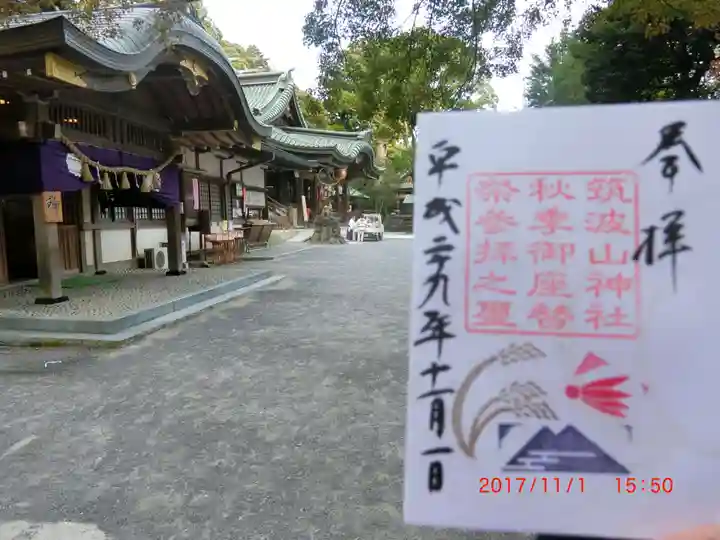 奉拝
筑波山神社
秋季御座替
祭参拝之璽
平成二九年十一月一日
2017/11/1 15:50